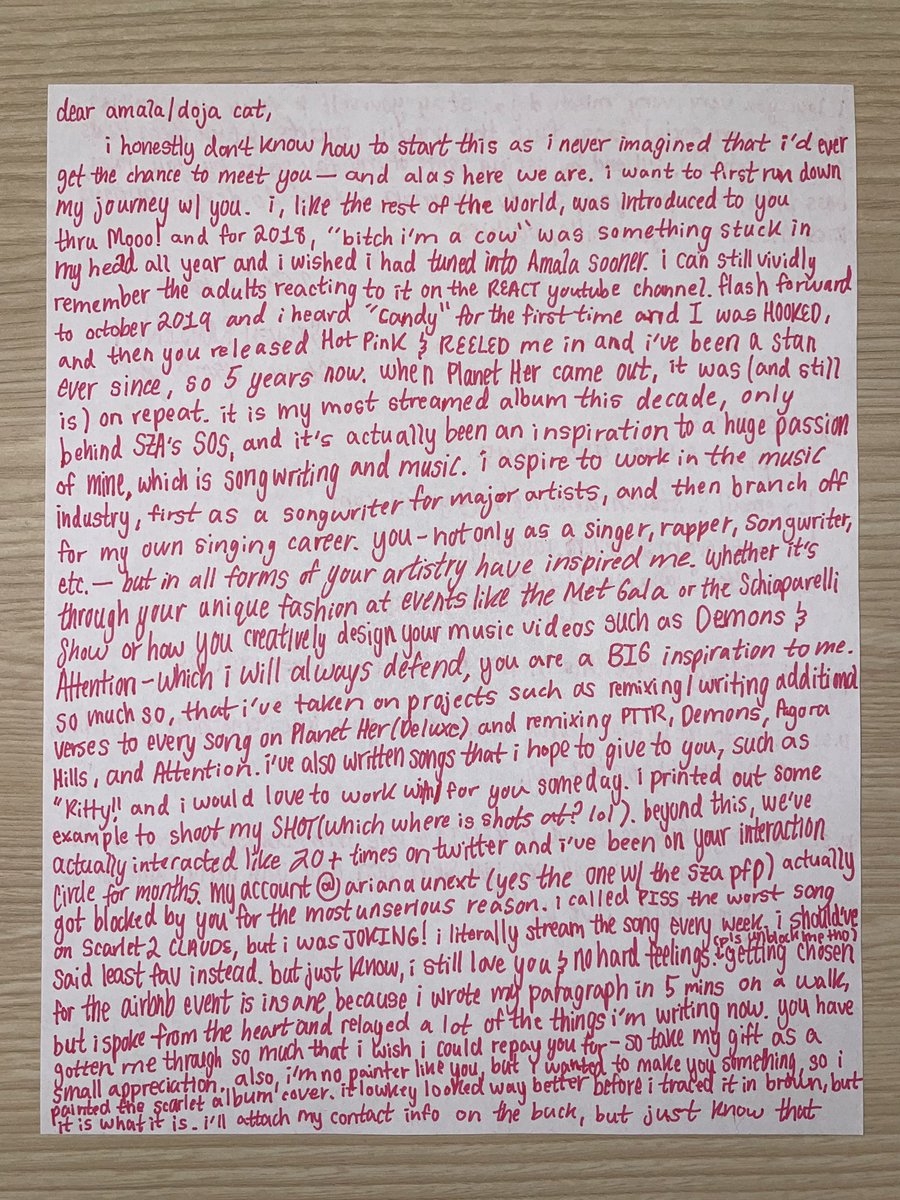 dear amala/doja cat,
i honestly don't know how to start this as i never imagined that i'd ever
get the chance to meet you — and alas here we are. i want to first run down
my journey w/ you. i, like the rest of the world, was introduced to you
thru Mooo! and for 2018, "bitch i'm a cow" was something stuck in
my head all year and i wished i had tuned into Amala sooner. i can still vividly
remember the adults reacting to it on the REACT youtube channel. flash forward
to october 2019 and i heard "Candy" for the first time and I was HOOKED,
and then you released Hot Pink & REELED me in and i've been a stan
ever since, so 5 years now. when Planet Her came out, it was (and still
is) on repeat. it is my most streamed album this decade, only
behind SZA's SOS, and it's actually been an inspiration to a huge passion
of mine, which is songwriting and music. i aspire to work in the music
industry, first as a songwriter for major artists, and then branch off
for my own singing career. you - not only as a singer, rapper, songwriter,
etc. — but in all forms of your artistry have inspired me. whether it's
through your unique fashion at events like the Met Gala or the Schiaparelli
Show or how you creatively design your music videos such as Demons &
Attention - which i will always defend, you are a BIG inspiration to me.
so much so, that i've taken on projects such as remixing/writing additional
verses to every song on Planet Her (Deluxe) and remixing PTTR, Demons, Agora
Hills, and Attention. i've also written songs that i hope to give to you, such as
"Kitty!! and i would love to work with/for you someday. i printed out some
example to shoot my SHOT (which where is shots at? lol). beyond this, we've
actually interacted like 20+ times on twitter and i've been on your interaction
circle for months. my account @arianaunext (yes the one w/ the sza pfp) actually
got blocked by you for the most unserious reason. i called PISS the worst song
on Scarlet 2 CLAUDS, but i was JOKING! i literally stream the song every week, i should've
said least fav instead. but just know, i still love you & no hard feelings. (pls unblock me tho) + getting chosen
for the airbnb event is insane because i wrote my paragraph in 5 mins on a walk,
but i spoke from the heart and relayed a lot of the things i'm writing now. you have
gotten me through so much that i wish i could repay you for - so take my gift as a
small appreciation. also, i'm no painter like you, but i wanted to make you something, so i
painted the scarlet album cover. it lowkey looked way better before i traced it in brown, but
it is what it is. i'll attach my contact info on the back, but just know that